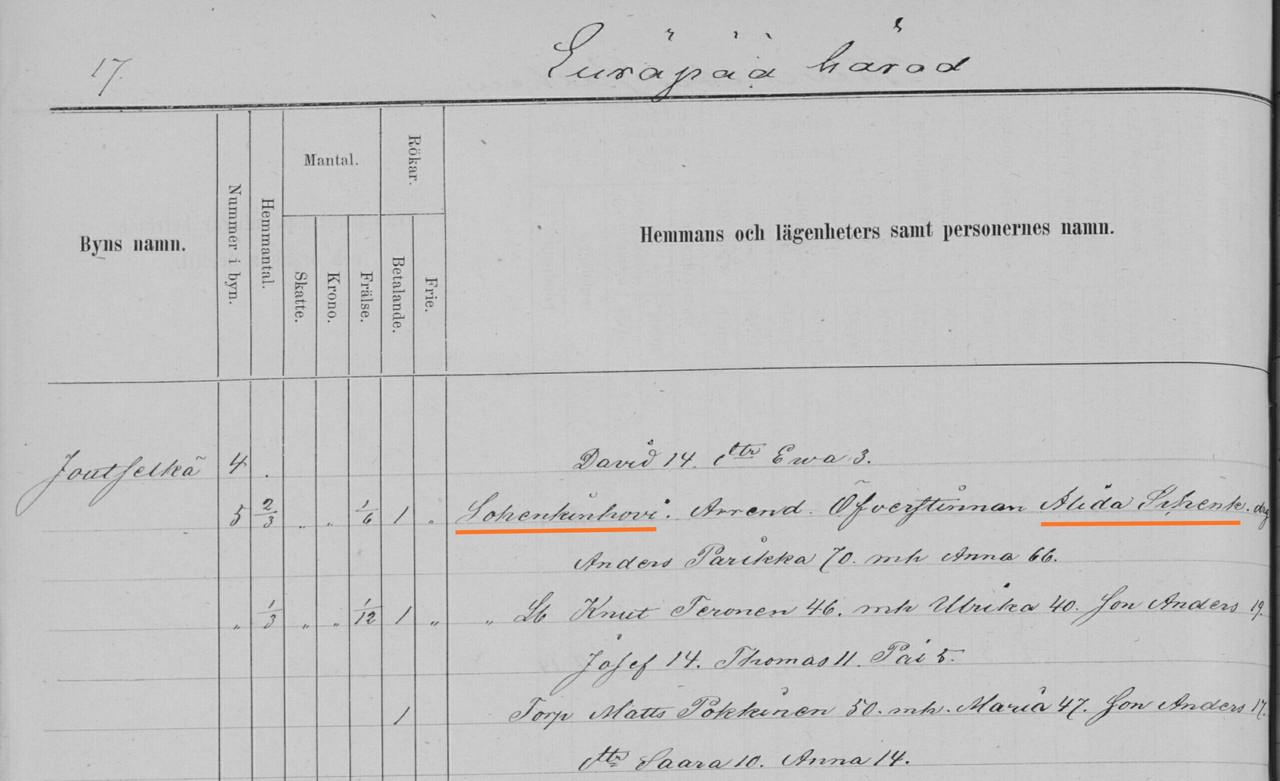 17.
Euräpää härad
Byns namn.
Nummer i byn.
Hemmantal.
Mantal.
Skatte.
Krono.
Frälse.
Rökar.
Betalande.
Frie.
Hemmans och lägenheters samt personernes namn.
Joutselkä 4 David 14. dttr Ewa 3.
5 2/3 „ „ 1/6 1 „ Schenkinhovi. Arrend. Öfverstinnan Alida Schenk.
Anders Parikka 70. mh Anna 66.
„ 1/3 „ „ 1/12 1 „ „ Lb Knut Teronen 46. mh Ulrika 40. Son Anders 19.
Josef 14. Thomas 11. Pål 5.
1 Torp Matts Pokkinen 50. mh. Maria 47. Son Anders 17.
dttr Saara 10. Anna 14.